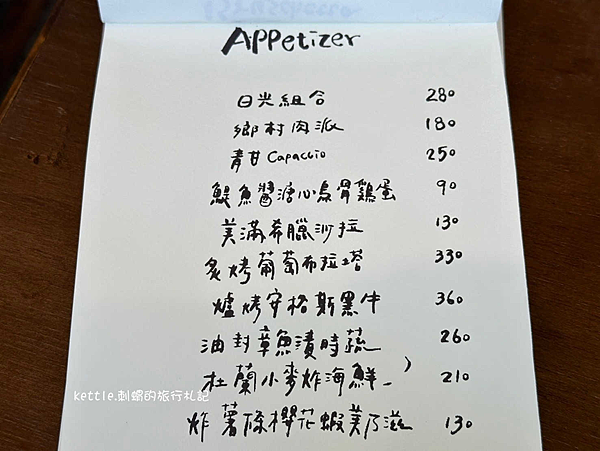 Appetizer
日光組合 280
鄉村肉派 180
青甘Capaccio 250
鯷魚醬溏心烏骨鷄蛋 90
美滿希臘沙拉 130
炙烤葡萄布拉塔 330
爐烤安格斯黑牛 360
油封章魚漬時蔬 260
杜蘭小麥炸海鮮 210
炸薯條櫻花蝦美乃滋 130
kettle.刺蝟的旅行札記